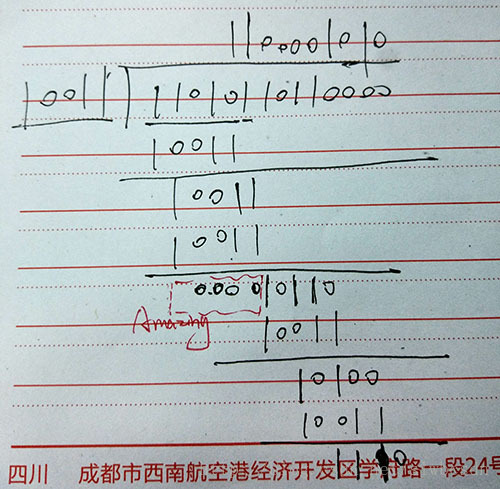 1100001010
10011 11010110110000
10011
10011
10011
0000 10110
Amazing
10011
10100
10011
1110
四川 成都市西南航空港经济开发区学府路一段24号